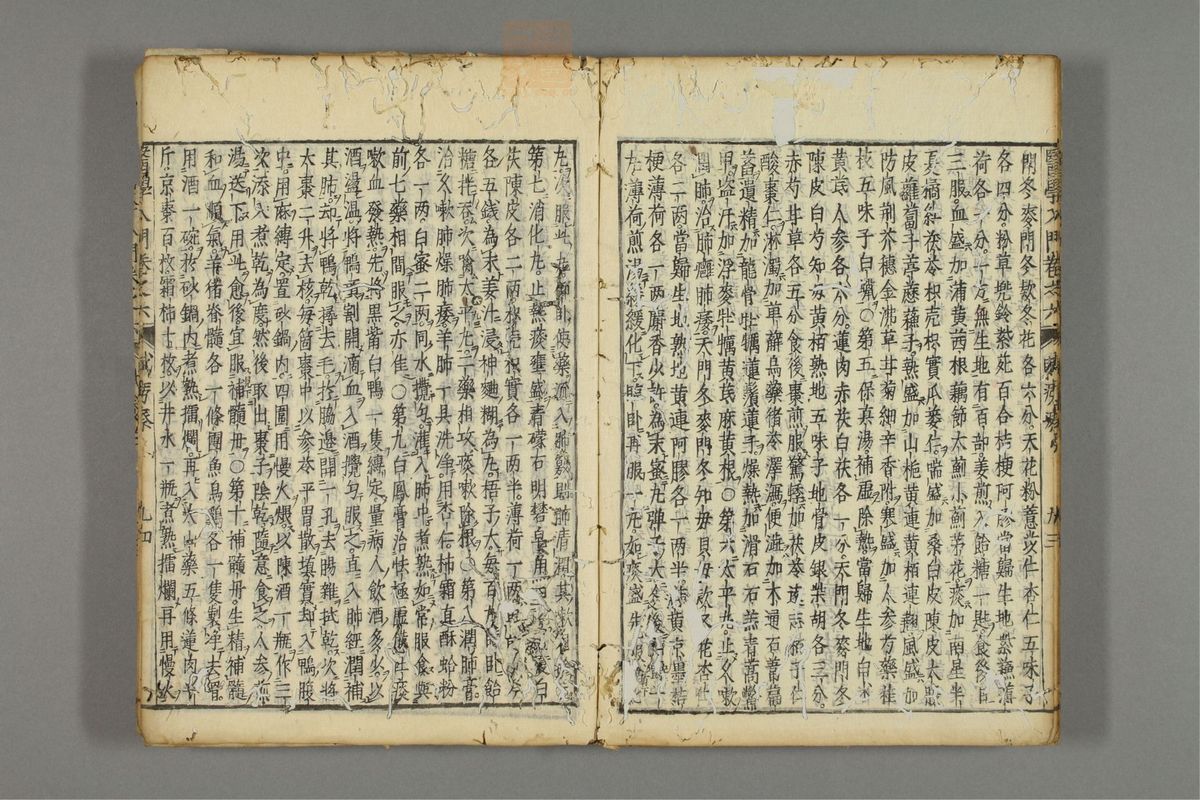 門冬麥門冬款冬花各六分天花粉薏苡仁杏仁五味子
各四分粉草兜鈴紫菀百合桔梗阿膠當歸生地紫蘇薄
荷各三分一方無生地有百部姜煎入飴糖一匙食後日
三服血盛加蒲黃茜根藕節大薊小薊茅花痰加南星半
夏橘紅茯苓枳壳枳實瓜蔞仁喘盛加桑白皮陳皮大腹
皮蘿蔔子葶藶蘇子熱盛加山梔黃連黃栢連翹風盛加
防風荊芥穗金沸草甘菊細辛香附寒盛加人參芍藥桂
枝五味子白蠟○第五保真湯補虛除熱當歸生地白朮
黃芪人參各六分蓮肉赤茯白茯各一分天門冬麥門冬
陳皮白芍知母黃栢熟地五味子地骨皮銀柴胡各三分
赤芍甘草各五分食後棗煎服驚悸加茯苓遠志栢子仁
酸棗仁淋濁加萆薢烏藥猪苓澤瀉便澁加木通石葦萹
蓄遺精加龍骨牡蠣蓮鬚蓮子燥熱加滑石石羔青蒿鱉
甲盜汗加浮麥牡蠣黃芪麻黃根○第六太平丸止久嗽
潤肺治肺癰肺痿天門冬麥門冬知母貝母款冬花杏仁
各二兩當歸生地熟地黃連阿膠各一兩半蒲黃京墨桔
梗薄荷各一兩麝香少許為末蜜丸彈子大食後
丸薄荷煎湯緩化下臨卧再服一丸如痰盛先服消化
丸次服此丸卧使藥流入肺竅則肺清潤其嗽
第七消化丸止熱痰壅盛青礞石明礬皂角白
茯陳皮各二兩枳壳枳實各一兩半薄荷一兩
各五錢為末姜汁浸神麯糊為丸梧子大每百丸臨卧飴
糖拌吞次噙太平丸二藥相攻痰嗽除根○第八潤肺膏
治久嗽肺燥肺痿羊肺一具洗净用杏仁柿霜真酥蛤粉
各一兩白蜜二兩同水攪勻灌入肺中煮熟如常服食與
前七藥相間服之亦佳○第九白鳳膏治怯極虛憊吐痰
嗽血發熱先將黑嘴白鴨一隻縛定量病人飲酒多少以
酒盪溫將鴨頂割開滴血入酒攪勻服之直入肺經潤補
其肺却將鴨乾撏去毛於脇邊開一孔去腸雜拭乾次將
大棗二升去核每箇棗中以參苓平胃散填實却入鴨腹
中用麻縛定置砂鍋内四圍用慢火煨以陳酒一瓶作三
次添入煮乾為度然後取出棗子陰乾隨意食之人參
湯送下用此愈後宜服補髓丹○第十補髓丹生精補髓
和血順氣羊猪脊髓各一條團魚烏鷄各一隻製净去骨
用酒一碗於砂鍋内煮熟擂爛再入大山藥五條蓮肉半
斤京棗百枚霜柿十枚以井水一瓶煮熟擂爛再用慢火